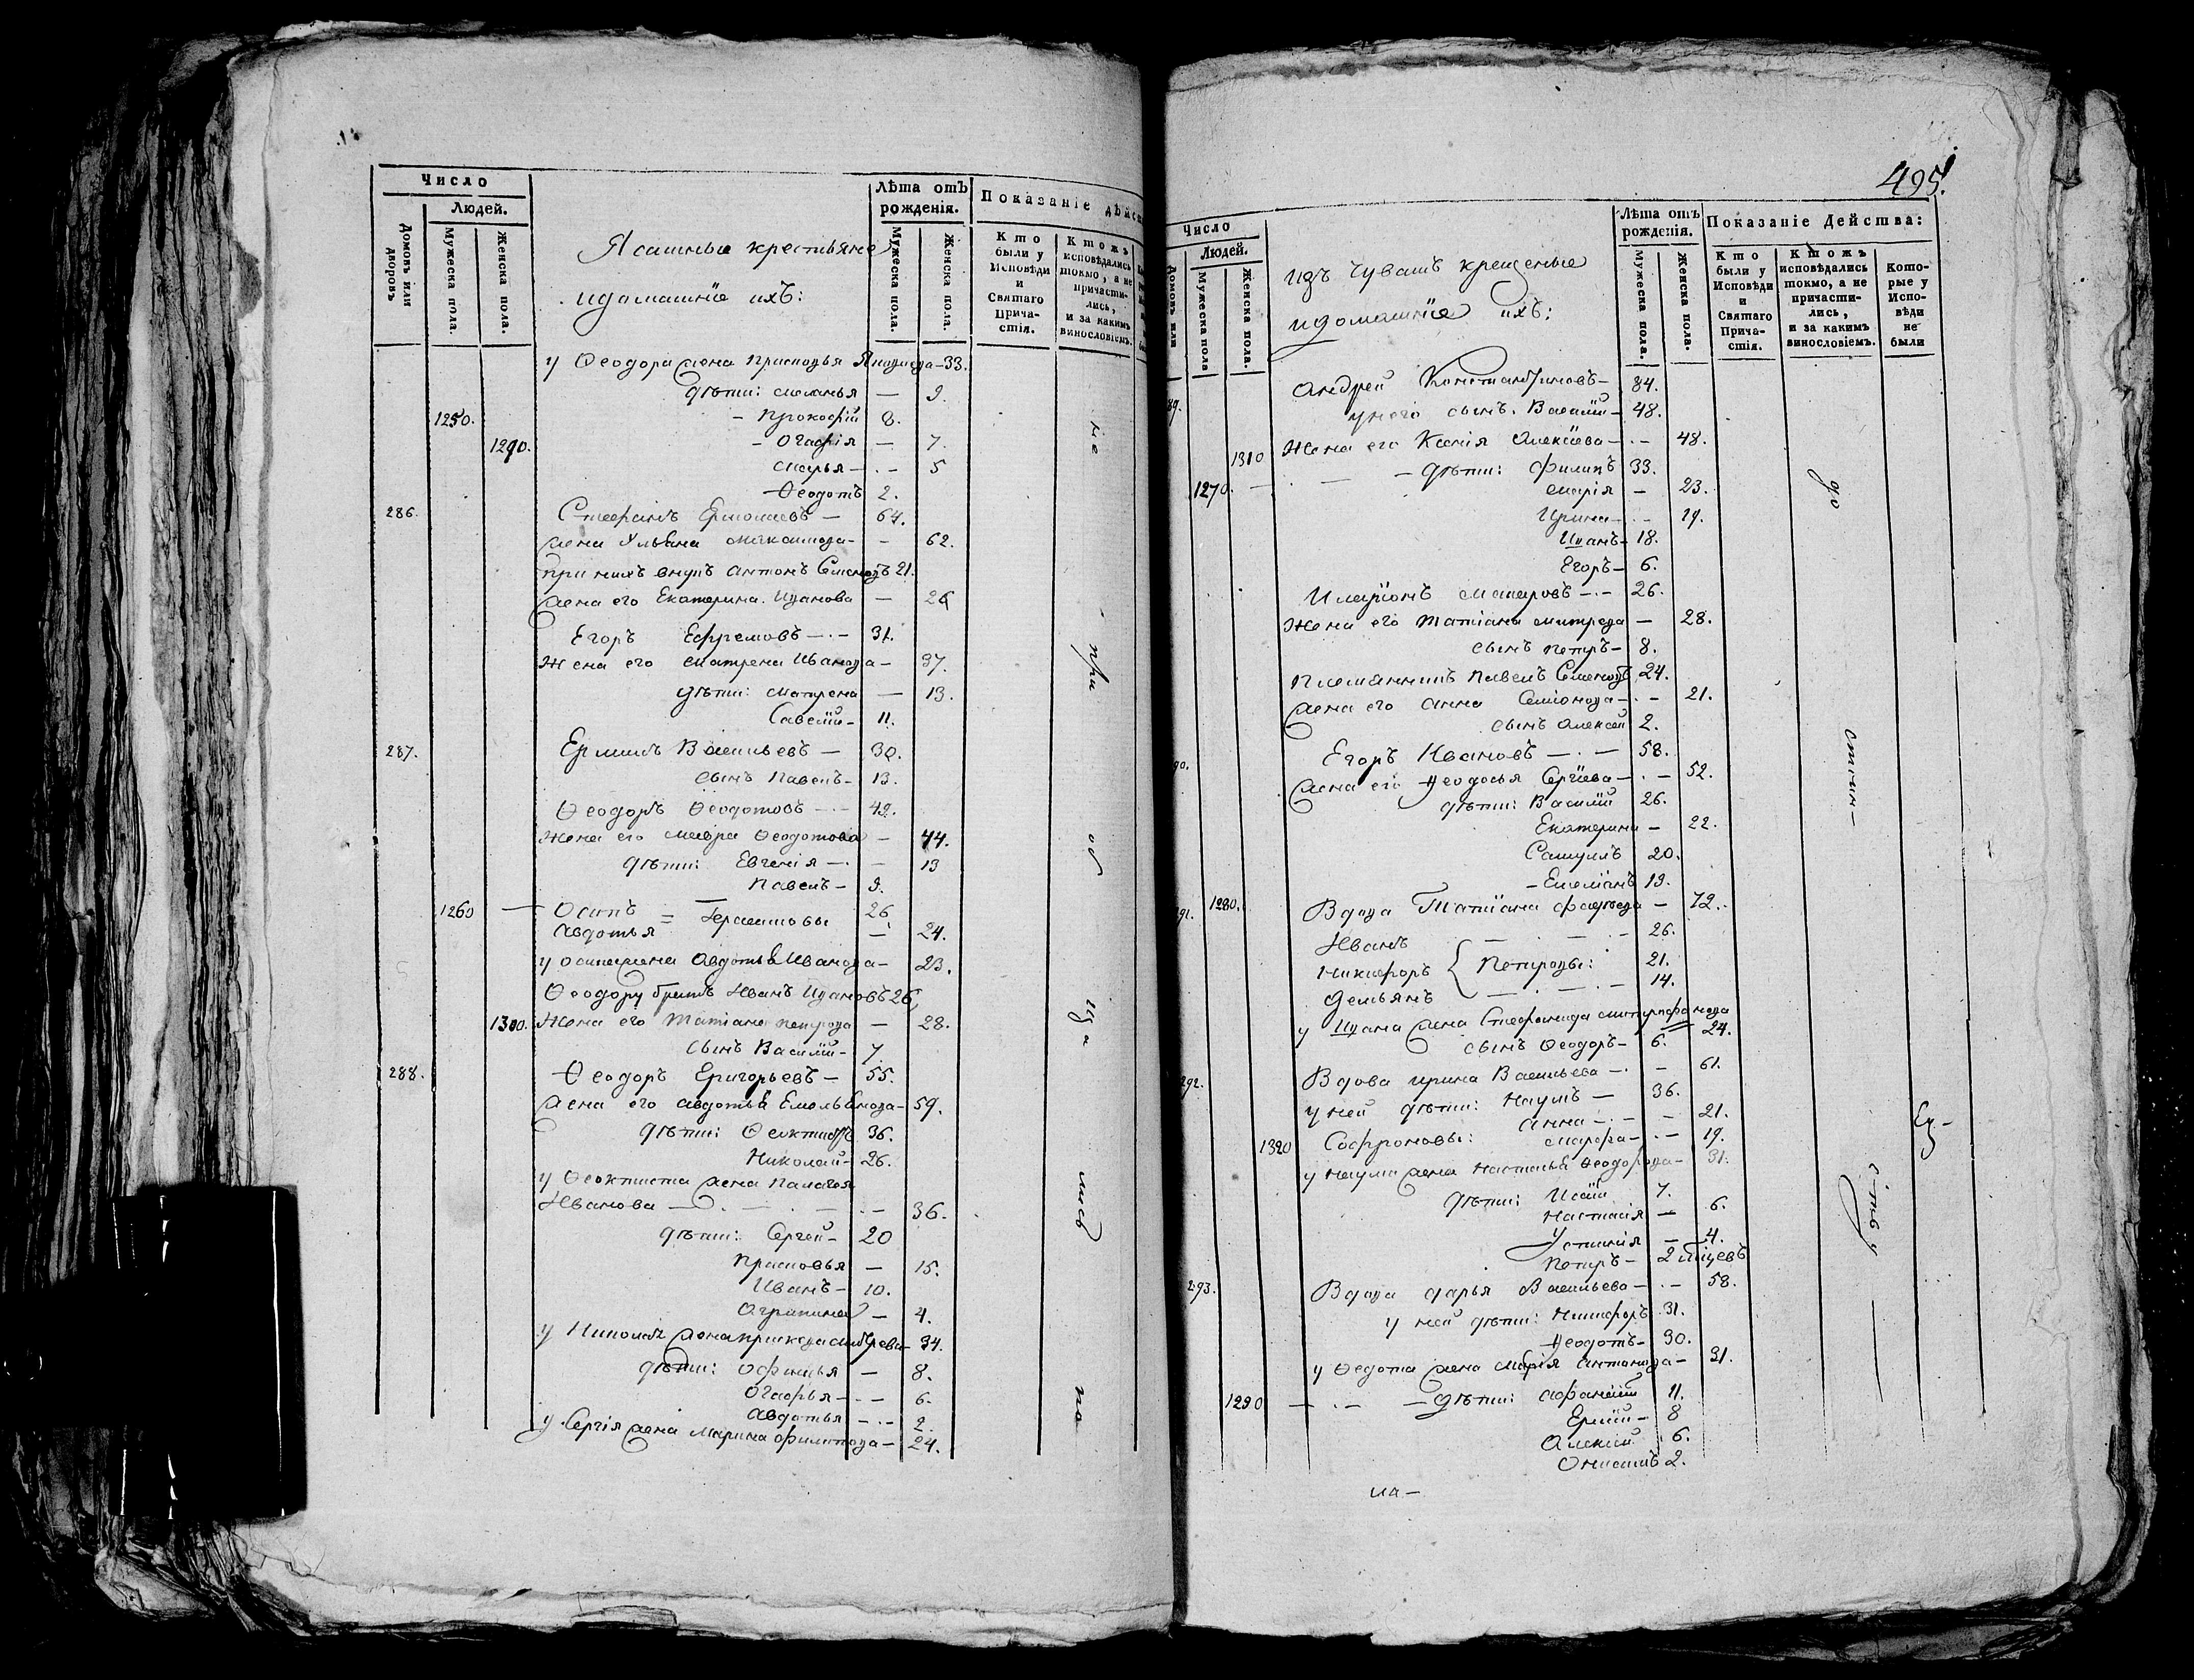 Число
Людей.
Домовъ или дворовъ
Мужеска пола.
Женска пола.
Ясашные крестьяне
и домашніе ихъ:
Лѣта отъ рожденія.
Мужеска пола.
Женска пола.
Показаніе дѣйс
Кто были у Исповѣди и Святаго Причастія.
Ктожъ исповѣдались токмо, а не причастились, и за какимъ винословіемъ.
у Ѳеодора жена Прасковья 33.
дѣти: Меланья — 9.
1250. - Прокофій 8.
1290. - Огафія — 7.
Марья — 5
Ѳеодотъ 2.
286. Стефанъ Ермолаевъ — 64.
жена Ульяна — 62.
при нихъ внукъ Антонъ Семеновъ 21.
жена его Екатерина Иванова — 26
Егоръ Ефремовъ — 31.
Жена его Матрена Иванова — 37.
дѣти: Матрена — 13.
Савелій — 11.
287. Ермилъ Васильевъ — 30.
сынъ Павелъ — 13.
Ѳеодоръ Ѳеодотовъ — 42.
Жена его Мавра Ѳеодотова — 44.
дѣти: Евгенія — 13
Павелъ — 9.
1260 — Осипъ 26
Авдотья = Герасимовы — 24.
у Осипа жена Авдотья Иванова — 23.
Ѳеодору братъ Иванъ Ивановъ 26,
1300. Жена его Татіана Петрова — 28.
сынъ Василій — 7.
288. Ѳеодоръ Григорьевъ — 55.
жена его Авдотья Емельянова — 59.
дѣти: Ѳеоктистъ 36.
Николай — 26.
у Ѳеоктиста жена Палагея
Иванова — 36.
дѣти: Сергей — 20
Прасковья — 15.
Иванъ — 10.
Аграпина — 4.
у Николая жена 34.
дѣти: Офимья — 8.
Огафья — 6.
Авдотья — 2.
у Сергія жена Марина Филипова — 24.
не
при
об
ща
лись
по
495.
Число
Людей.
Домовъ или
Мужеска пола
Женска пола.
изъ Чувашъ крещеные
и домашніе ихъ:
Лѣта отъ рожденія.
Мужеска пола.
Женска пола.
Показаніе Действа:
Кто были у Исповѣди и Святаго Причастія.
Ктожъ исповѣдались токмо, а не причастились, и за какимъ винословіемъ.
Которые у Исповѣди не были
89. Андрей Константиновъ — 84.
у него сынъ Василій — 48.
1310 Жена его Ксенія Алексѣева — 48.
— дѣти: Филипъ 33.
1270. Марія — 23.
Ирина — 19.
Иванъ — 18.
Егоръ — 6.
Иларіонъ Макаровъ — 26.
Жена его Татіана — 28.
сынъ Петръ — 8.
Племянникъ Павелъ Семеновъ 24.
жена его Анна Семіонова — 21.
сынъ Алексей 2.
90. Егоръ Ивановъ — 58.
жена его Ѳеодосья Сергіева — 52.
дѣти: Василій 26.
Екатерина — 22.
Самуилъ 20.
- Емельянъ 13.
91. 1280. Вдова Татіана — 72.
Иванъ — 26.
Никифоръ { Петровы: 21.
Демьянъ — 14.
у Ивана жена Стефанида 24.
сынъ Ѳеодоръ — 6.
292. Вдова Ирина Васильева — 61.
у ней дѣти: Наумъ — 36.
Анна — 21.
1320 Софроновы: Марфа — 19.
у Наума жена Настасья Ѳеодорова — 31.
дѣти: Исай 7.
Настасія — 6.
Устинія — 4.
Петръ — 2 мцевъ
293. Вдова Дарья Васильева — 58.
у ней дѣти: Никифоръ 31.
Ѳеодотъ — 30.
у Ѳедота жена Марія Антонова — 31.
1290 — дѣти: Афанасій 11.
Ермій — 8
Алексій 6.
Онисимъ 2.
на —
до
стоин —
ству